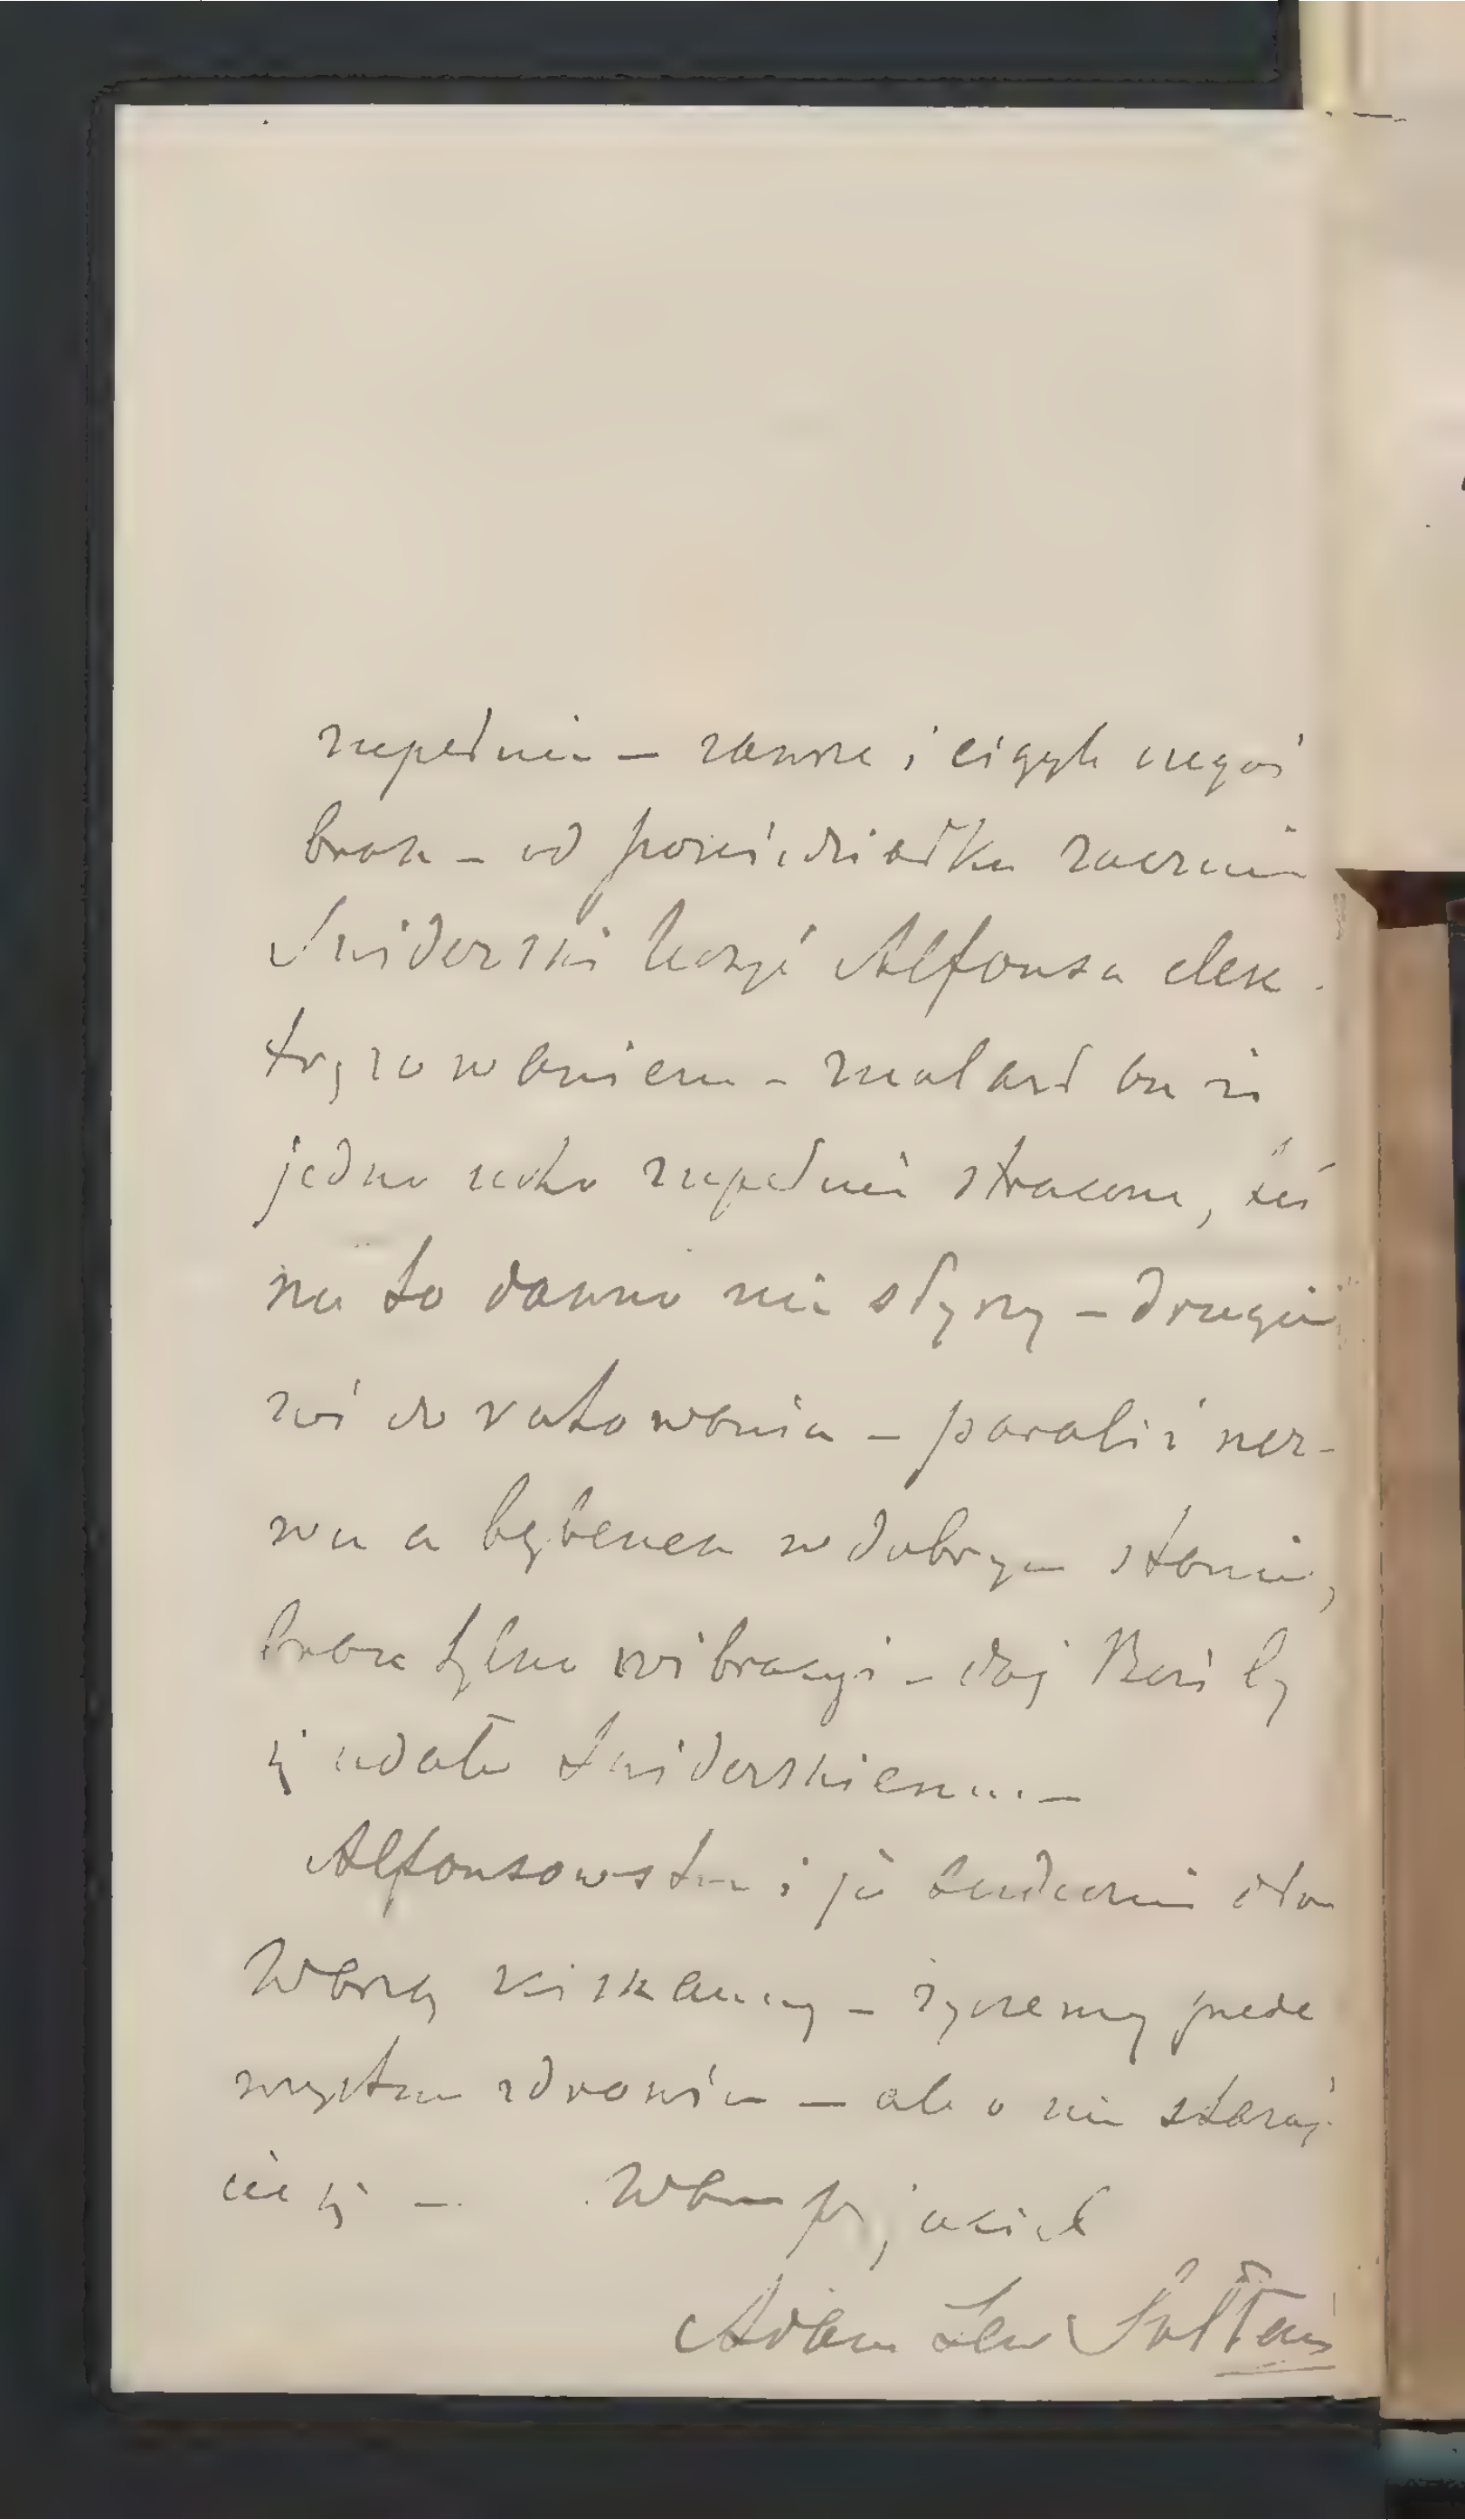 zupełnie – zawsze i ciągle czegoś
brak – od poniedziałku zacznie
Świderski leczyć Alfonsa elek-
tryzowaniem – znalazł on że
jedno ucho zupełnie stracone, też
na to dawno nie słyszy – drugie
zaś do ratowania – paraliż ner-
wu a bębenek w dobrym stanie,
brak tylko wibracyi – daj Boże by
się udało Świderskiemu. –
Alfonsowstwo i ja serdecznie
Was ściskamy – życzemy przede
wszystkiem zdrowia – ale o nie staraj-
cie się – Wasz przyjaciel
Adam Lew Sołtan